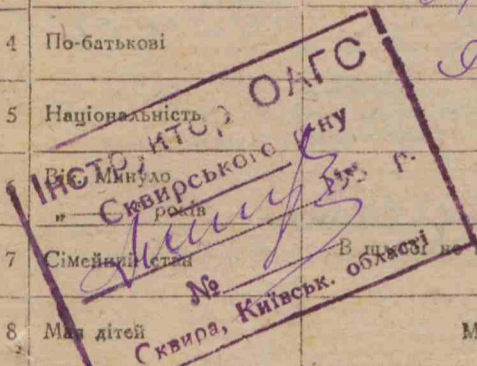 4 По-батькові
5 Національність
6 Вік. Минуло
„— років
7 Сімейний стан
В шлюбі не
8 Має дітей
М
Інструктор ОАГС
Сквирського р-ну
193 р.
№
Сквира, Київськ. області